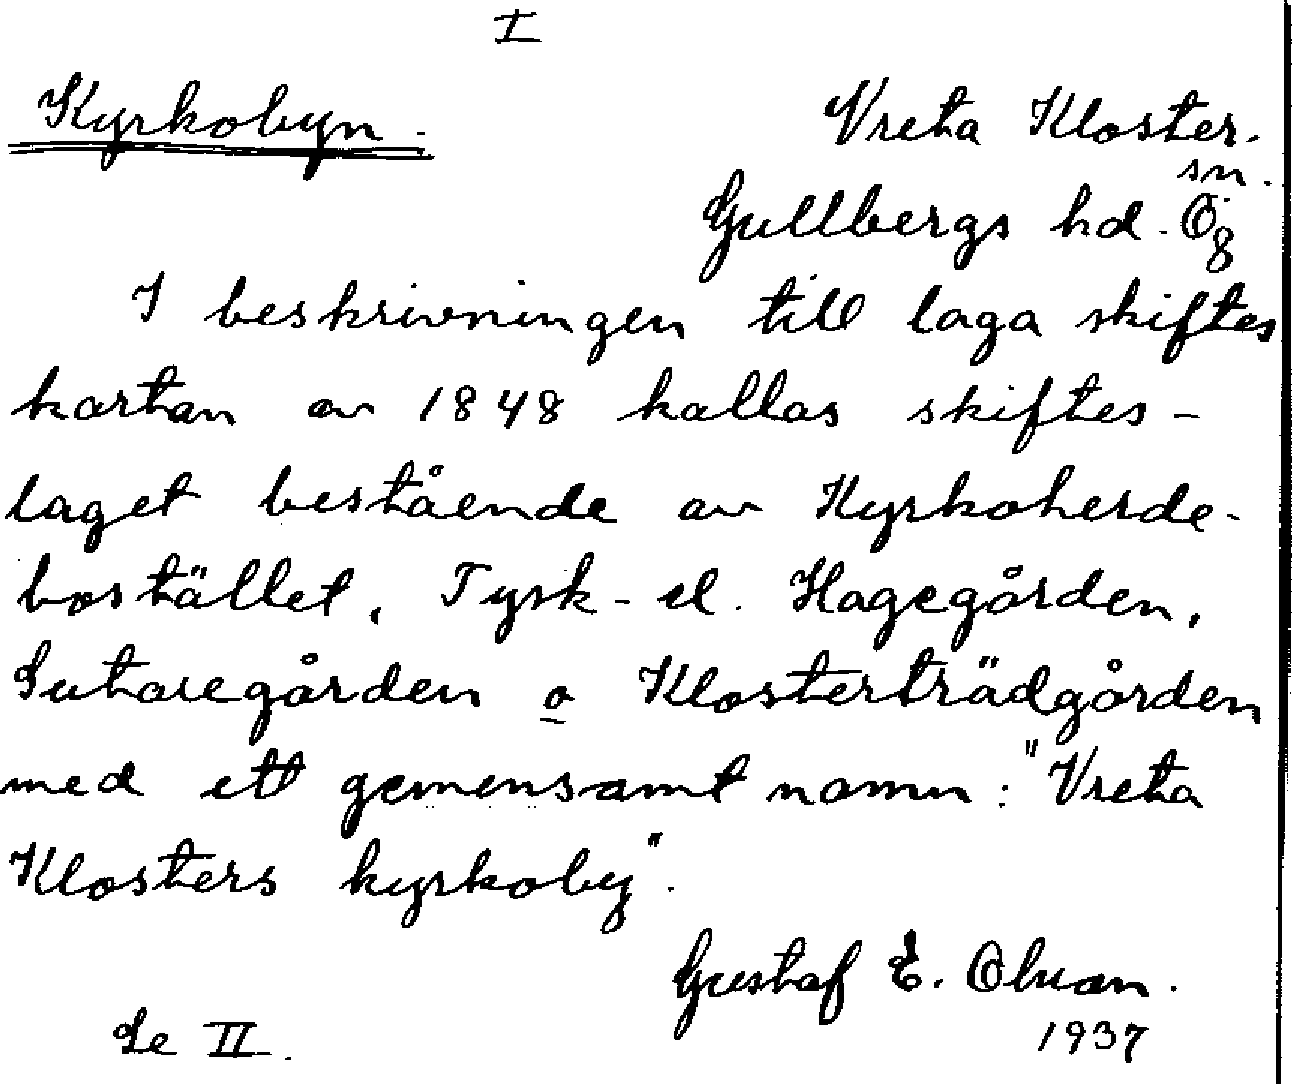 I
Kyrkobyn. Vreta Kloster.
sn.
Gullbergs hd. Ög
I beskrivningen till laga skiftes
kartan av 1848 kallas skiftes-
laget bestående av Kyrkoherde-
bostället, Tysk- el. Hagegården,
Sutaregården o Klosterträdgården
med ett gemensamt namn: "Vreta
Klosters kyrkoby".
Gustaf E.
Se II. 1937